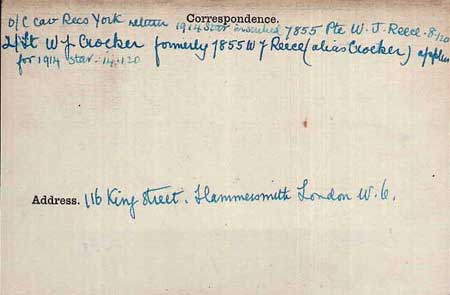 Correspondence.
O/C Cav Recs York return 1914 Star inscribed 7855 Pte W. J. Reece. 8.1.20
2/Lt W J Crocker formerly 7855 W J Reece (alias Crocker) applies
for 1914 Star. 14.1.20
Address. 116 King Street. Hammersmith London W. 6.